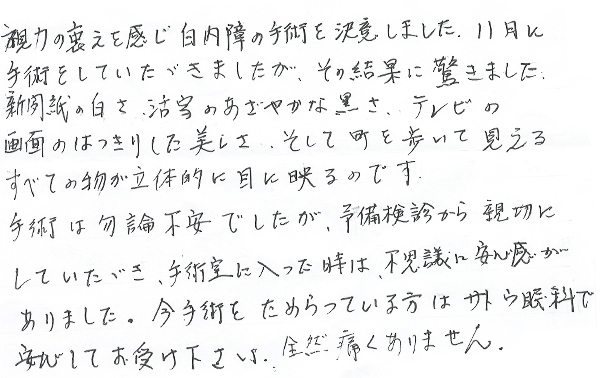 視力の衰えを感じ白内障の手術を決意しました. 11月に
手術をしていただきましたが、その結果に驚きました.
新聞紙の白さ、活字のあざやかな黒さ、テレビの
画面のはっきりした美しさ、そして町を歩いて見える
すべての物が立体的に目に映るのです.
手術は勿論不安でしたが、予備検診から親切に
していただき、手術室に入った時は、不思議に安心感が
ありました。今手術をためらっている方はサトウ眼科で
安心してお受け下さい. 全然痛くありません.